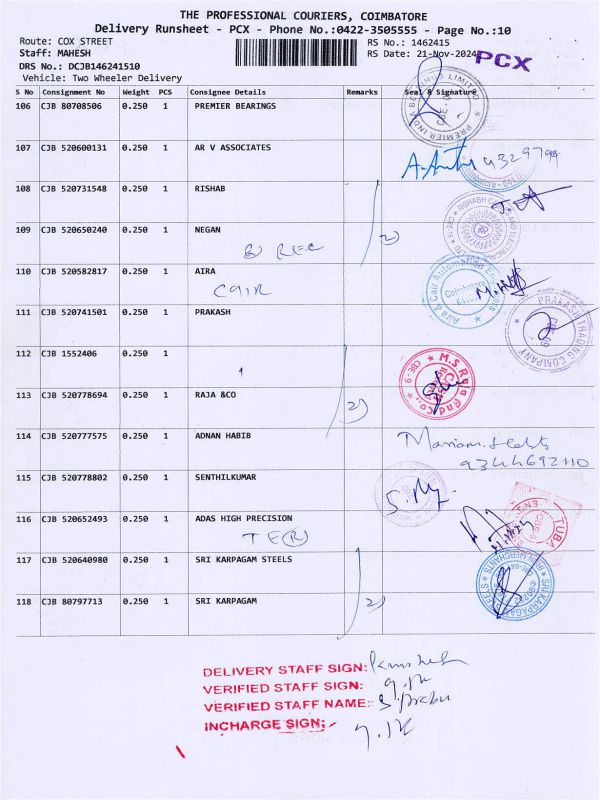 THE PROFESSIONAL COURIERS, COIMBATORE
Delivery Runsheet - PCX - Phone No.:0422-3505555 - Page No.:10
Route: COX STREET RS No.: 1462415
Staff: MAHESH RS Date: 21-Nov-2024 PCX
DRS No.: DCJB146241510
Vehicle: Two Wheeler Delivery
S No Consignment No Weight PCS Consignee Details Remarks Seal & Signature
106 CJB 80708506 0.250 1 PREMIER BEARINGS
107 CJB 520600131 0.250 1 AR V ASSOCIATES
108 CJB 520731548 0.250 1 RISHAB
109 CJB 520650240 0.250 1 NEGAN
110 CJB 520582817 0.250 1 AIRA
111 CJB 520741501 0.250 1 PRAKASH
PRAKASH TRADING COMPANY
112 CJB 1552406 0.250 1
113 CJB 520778694 0.250 1 RAJA &CO
M.S Raja and Co.,
CBE-9
114 CJB 520777575 0.250 1 ADNAN HABIB
9344692110
115 CJB 520778802 0.250 1 SENTHILKUMAR
116 CJB 520652493 0.250 1 ADAS HIGH PRECISION
TUBA
117 CJB 520640980 0.250 1 SRI KARPAGAM STEELS
118 CJB 80797713 0.250 1 SRI KARPAGAM
DELIVERY STAFF SIGN:
VERIFIED STAFF SIGN:
VERIFIED STAFF NAME: S. Prabu
INCHARGE SIGN: